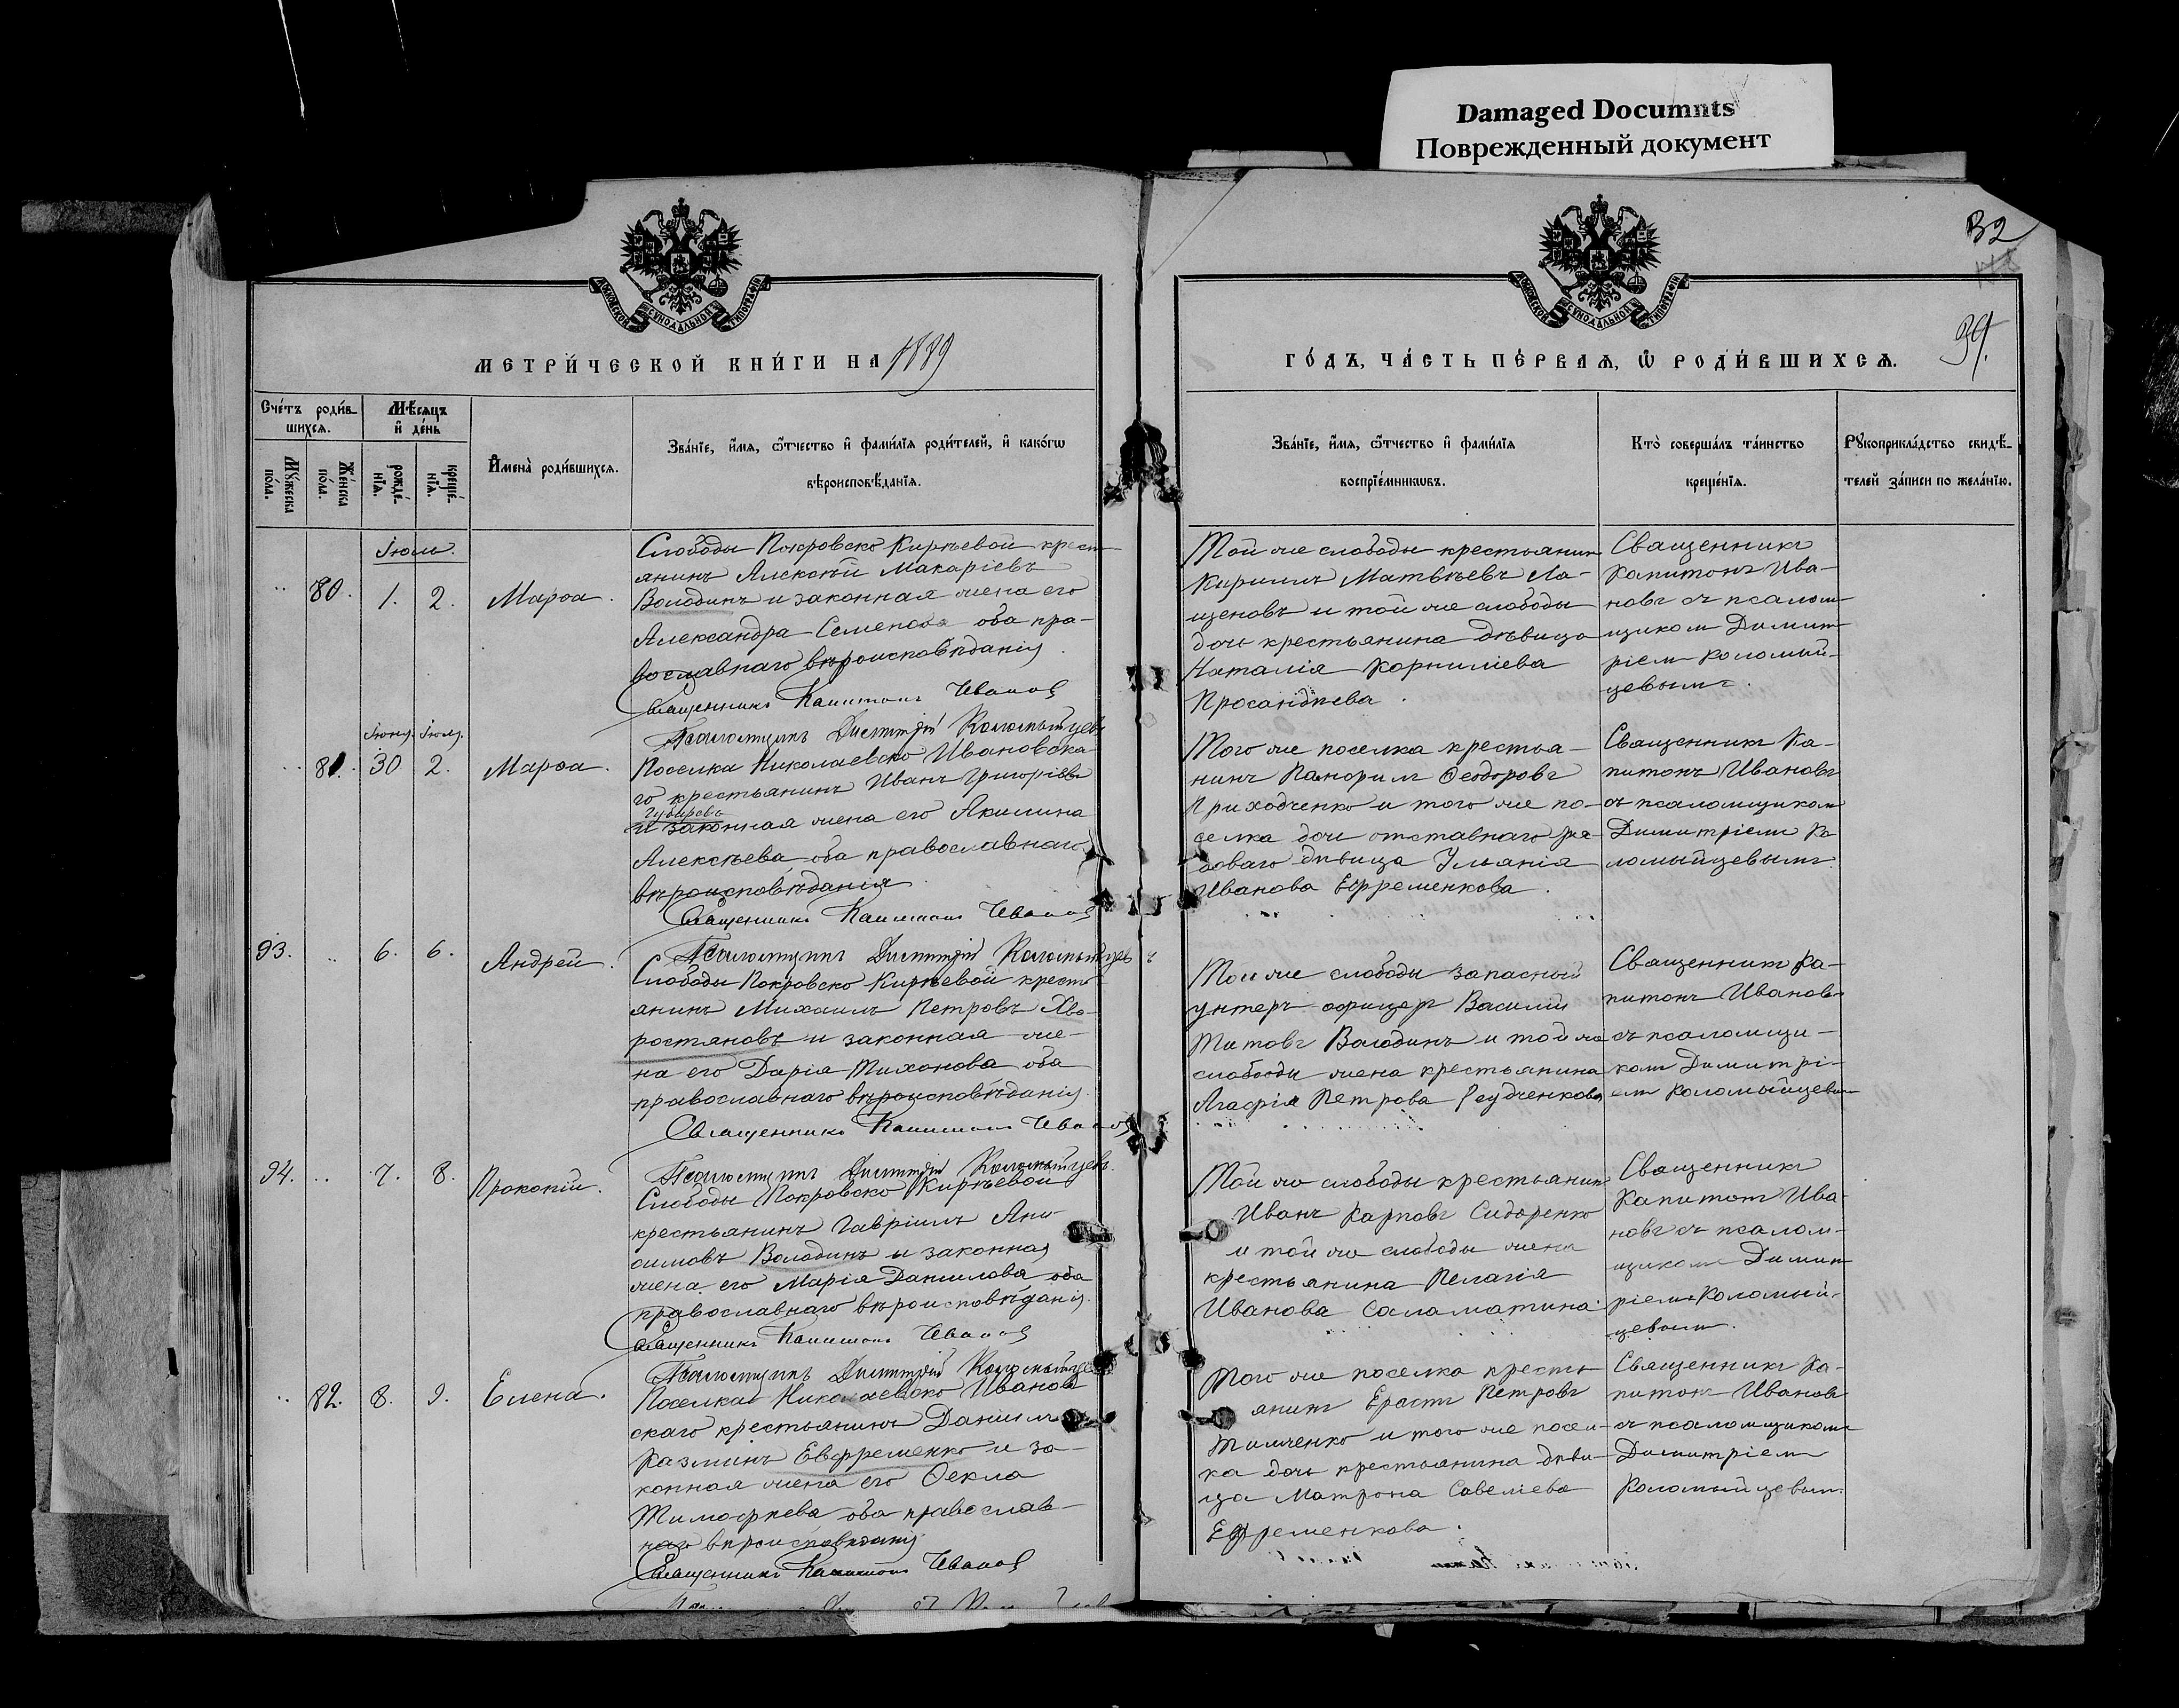 Damaged Documnts
Поврежденный документ
32
39.
МОСКОВСКОЙ СѴНОДАЛЬНОЙ ТИПОГРАФІИ
МОСКОВСКОЙ СѴНОДАЛЬНОЙ ТИПОГРАФІИ
МЕТРИ́ЧЕСКОЙ КНИ́ГИ НА 1889
ГО́ДЪ, ЧА́СТЬ ПЕ́РВАѦ, Ѡ҆ РОДИ́ВШИХСѦ.
Сче́тъ роди́в-
шихсѧ.
Мѣ́сѧцъ
и҆ де́нь
Мꙋ́жеска
по́ла.
Же́нска
по́ла.
рожде́-
нїѧ.
креще́-
нїѧ.
И҆мена̀ роди́вшихсѧ.
Зва́нїе, и҆́мѧ, ѻ҆́тчество и҆ фами́лїѧ роди́телей, и҆ како́гѡ
вѣроисповѣ́данїѧ.
Зва́нїе, и҆́мѧ, ѻ҆́тчество и҆ фами́лїѧ
воспрїе́мникѡвъ.
Кто̀ соверша́лъ та́инство
креще́нїѧ.
Рꙋкоприкла́дство свидѣ́-
телей за́писи по жела́нїю.
Іюль.
80. 1. 2. Марѳа.
Слободы Покровско Кирѣевой крест-
янинъ Алексѣй Макаріевъ
Володинъ и законная жена его
Александра Семенова оба пра-
вославнаго вѣроисповѣданія.
Священникъ Капитонъ Ивановъ
Псаломщикъ Димитрій Коломыйцевъ
Той же слободы крестьянинъ
Кириллъ Матвѣевъ Ла-
щеновъ и той же слободы
дочь крестьянина дѣвица
Наталія Корниліева
Просандѣева.
Священникъ
Капитонъ Ива-
новъ съ псалом-
щикомъ Димит-
ріемъ Коломый-
цевымъ.
Іюня. Іюля.
81. 30 2. Марѳа.
Поселка Николаевско Ивановска-
го крестьянинъ Иванъ Григоріевъ
Губаревъ
и законная жена его Акилина
Алексѣева оба православнаго
вѣроисповѣданія
Священникъ Капитонъ Ивановъ
Псаломщикъ Димитрій Коломыйцевъ
Того же поселка крестья-
нинъ Панфилъ Ѳеодоровъ
Приходченко и того же по-
селка дочь отставнаго ря-
доваго дѣвица Ульянія
Иванова Ефременкова.
Священникъ Ка-
питонъ Ивановъ
съ псаломщикомъ
Димитріемъ Ко
ломыйцевымъ
93. 6. 6. Андрей.
Слободы Покровско Кирѣевой кресть
янинъ Михаилъ Петровъ Хво-
ростяновъ и законная же-
на его Дарія Тихонова оба
православнаго вѣроисповѣданія.
Священникъ Капитонъ Ивановъ
Псаломщикъ Димитрій Коломыйцевъ.
Той же слободы запасный
унтеръ офицеръ Василій
Титовъ Володинъ и той же
слободы жена крестьянина
Агафія Петрова Редченкова
Священникъ Ка-
питонъ Ивановъ
съ псаломщи-
комъ Димитрі-
емъ Коломыйцевымъ
94. 7. 8. Прокопій.
Слободы Покровско Кирѣевой
крестьянинъ Гавріилъ Ани-
симовъ Володинъ и законная
жена его Марія Данилова оба
православнаго вѣроисповѣданія.
Священникъ Капитонъ Ивановъ
Псаломщикъ Димитрій Коломыйцевъ
Той же слободы крестьянинъ
Иванъ Карповъ Сидоренко
и той же слободы жена
крестьянина Пелагія
Иванова Саламатина
Священникъ
Капитонъ Ива-
новъ съ псалом-
щикомъ Димит
ріемъ Коломый-
цевымъ.
82. 8. 9. Елена.
Поселка Николаевско Иванов
скаго крестьянинъ Даніилъ
Казминъ Евфременко и за-
конная жена его Ѳекла
Тимофѣева оба православ-
наго вѣроисповѣданія
Священникъ Капитонъ Ивановъ
Того же поселка кресть
янинъ Ерастъ Петровъ
Тимченко и того же посел-
ка дочь крестьянина дѣви-
ца Матрона Савеліева
Ефременкова.
Священникъ Ка-
питонъ Ивановъ
съ псаломщикомъ
Димитріемъ
Коломыйцевым.